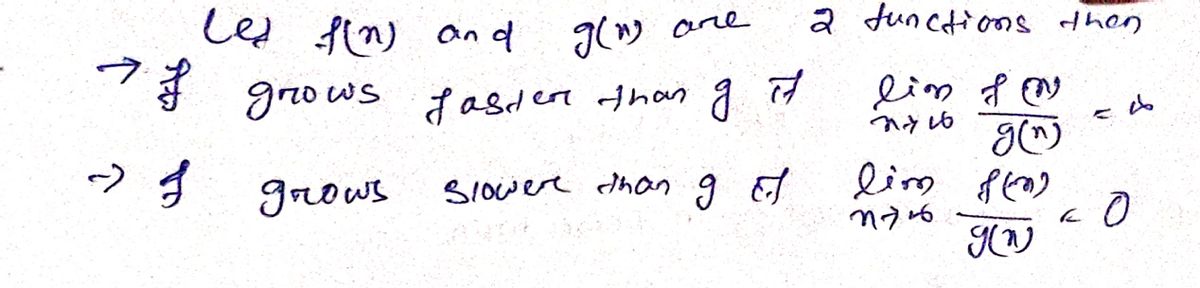 Let f(n) and g(n) are 2 functions then
→ f grows faster than g if lim n→∞ f(n)/g(n) = ∞
→ f grows slower than g if lim n→∞ f(n)/g(n) = 0